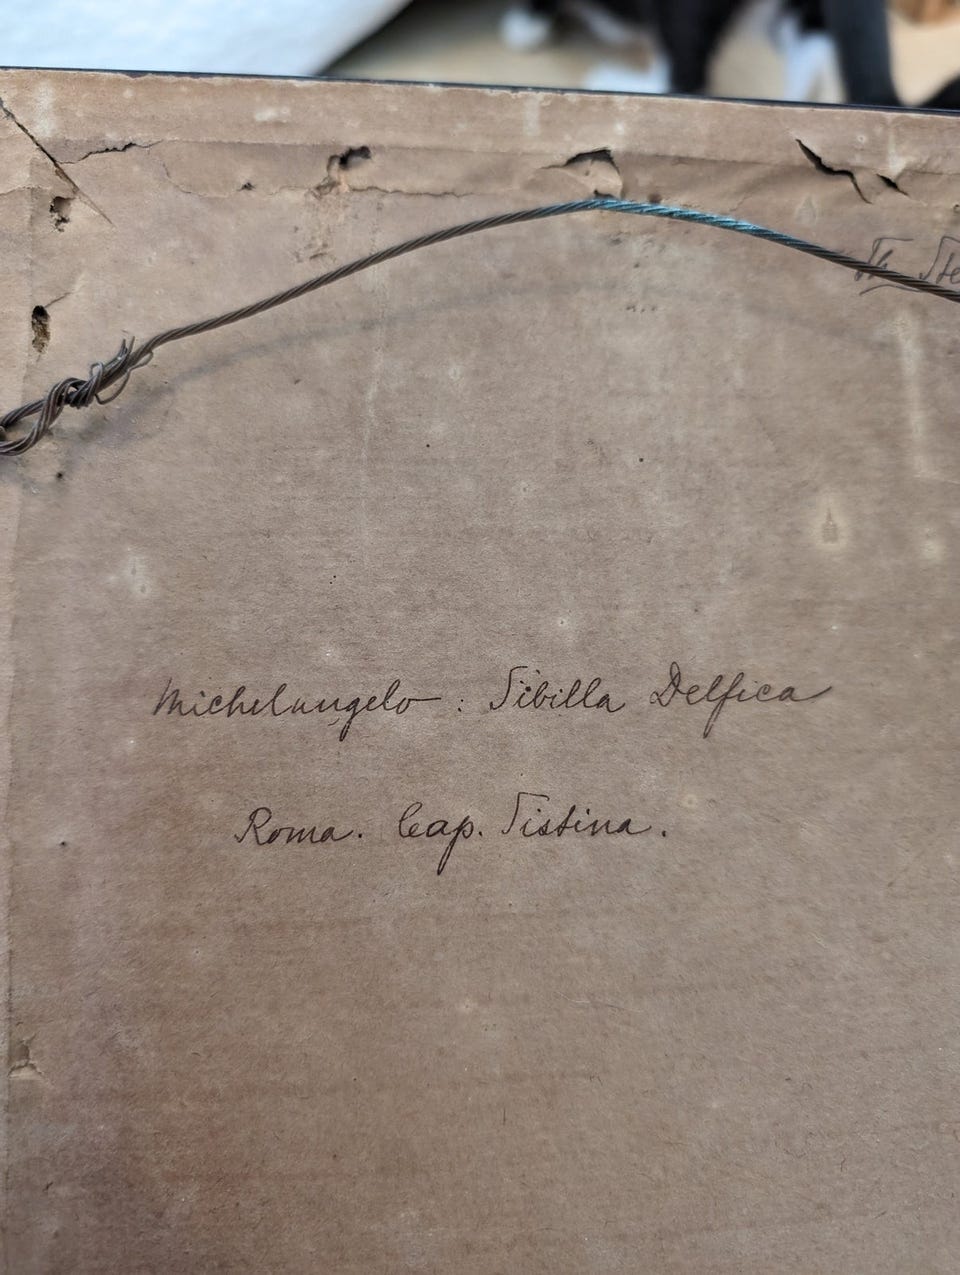 Th Ste
Michelangelo : Sibilla Delfica
Roma. Cap. Sistina.